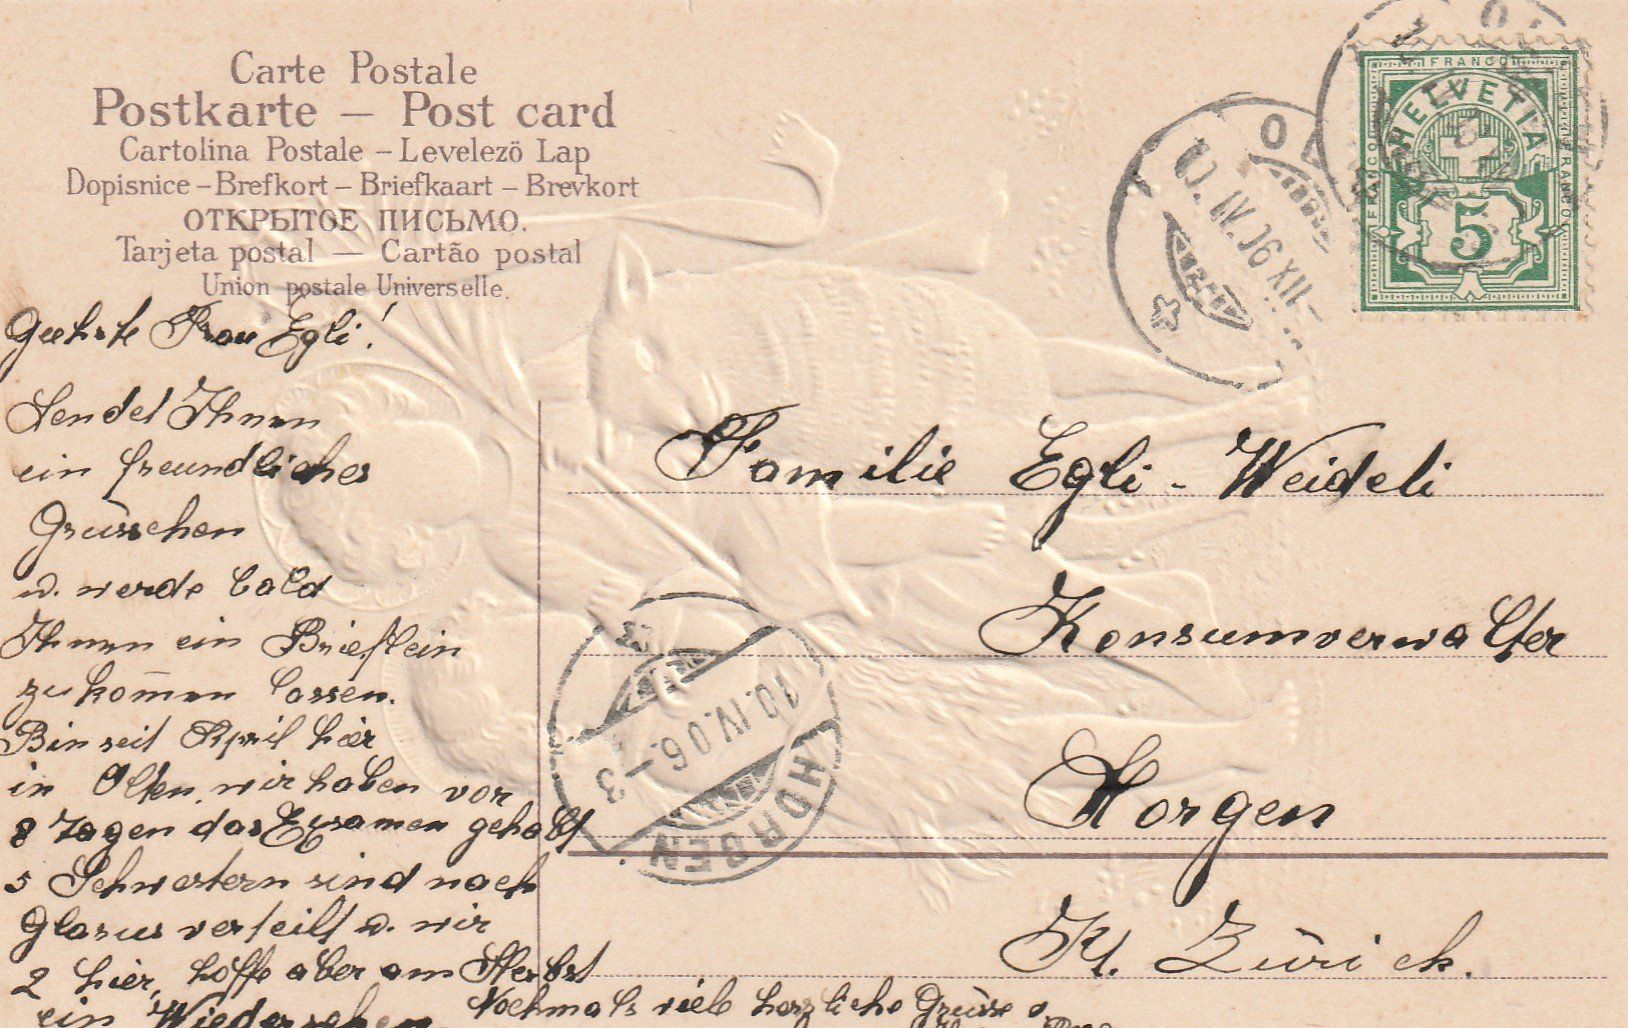 Carte Postale
Postkarte – Post card
Cartolina Postale – Levelezö Lap
Dopisnice – Brefkort – Briefkaart – Brevkort
ОТКРЫТОЕ ПИСЬМО.
Tarjeta postal — Cartão postal
Union postale Universelle.
Geehrte Frau Egli!
Sendet Ihnen
ein freundliches
Grüsschen
u. werde bald
Ihnen ein Brieflein
zukom̄en lassen.
Bin seit April hier
in Olten, wir haben vor
8 Tagen das Examen gehabt
5 Schwestern sind nach
Glarus verteilt u. wir
2 hier, hoffe aber am Herbst
ein Wiedersehen.
Nochmals viele herzliche Grüsse
Familie Egli - Weideli
Konsumverwalter
Horgen
Kt. Zürich.
FRANCO
FRANCO
FRANCO
HELVETIA
5
OL
10. IV. 06 XII
HORGEN
10. IV. 06. – 3